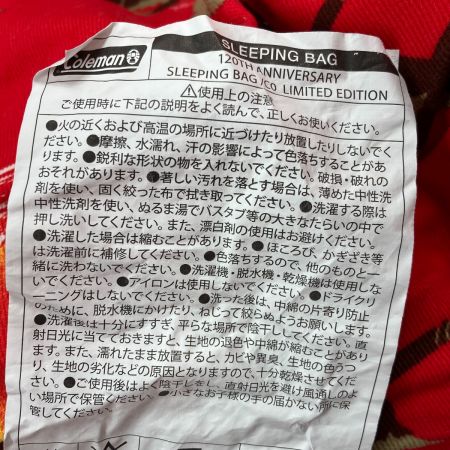 Coleman
SLEEPING BAG
120TH ANNIVERSARY
SLEEPING BAG /C0 LIMITED EDITION
⚠使用上の注意
ご使用時に下記の説明をよく読んで、正しくお使いください。
●火の近くおよび高温の場所に近づけたり放置したりしないでく
ださい。●摩擦、水濡れ、汗の影響によって色落ちすることがあ
ります。●鋭利な形状の物を入れないでください。破損・破れの
おそれがあります。●著しい汚れを落とす場合は、薄めた中性洗
剤を使い、固く絞った布で拭き取ってください。●洗濯する際は
中性洗剤を使い、ぬるま湯でバスタブ等の大きなたらいの中で
押し洗いしてください。また、漂白剤の使用はお避けください。
●洗濯した場合は縮むことがあります。●ほころび、かぎざき等
は洗濯前に補修してください。●色落ちするので、他のものと一
緒に洗わないでください。●洗濯機・脱水機・乾燥機は使用しな
いでください。●アイロンは使用しないでください。●ドライクリ
ーニングはしないでください。●洗った後は、中綿の片寄り防止
のために、脱水機にかけたり、ねじって絞らぬようお願いします。
●洗濯後は十分にすすぎ、平らな場所で陰干ししてください。直
射日光に当てておきますと、生地の退色や中綿が縮むことがあり
ます。また、濡れたまま放置すると、カビや異臭、生地の色うつ
り、生地の劣化などの原因となりますので、十分乾燥させてくだ
さい。●ご使用後はよく陰干しをし、直射日光を避け風通しのよ
い場所で保管ください。●小さなお子様の手の届かない所に保
管してください。